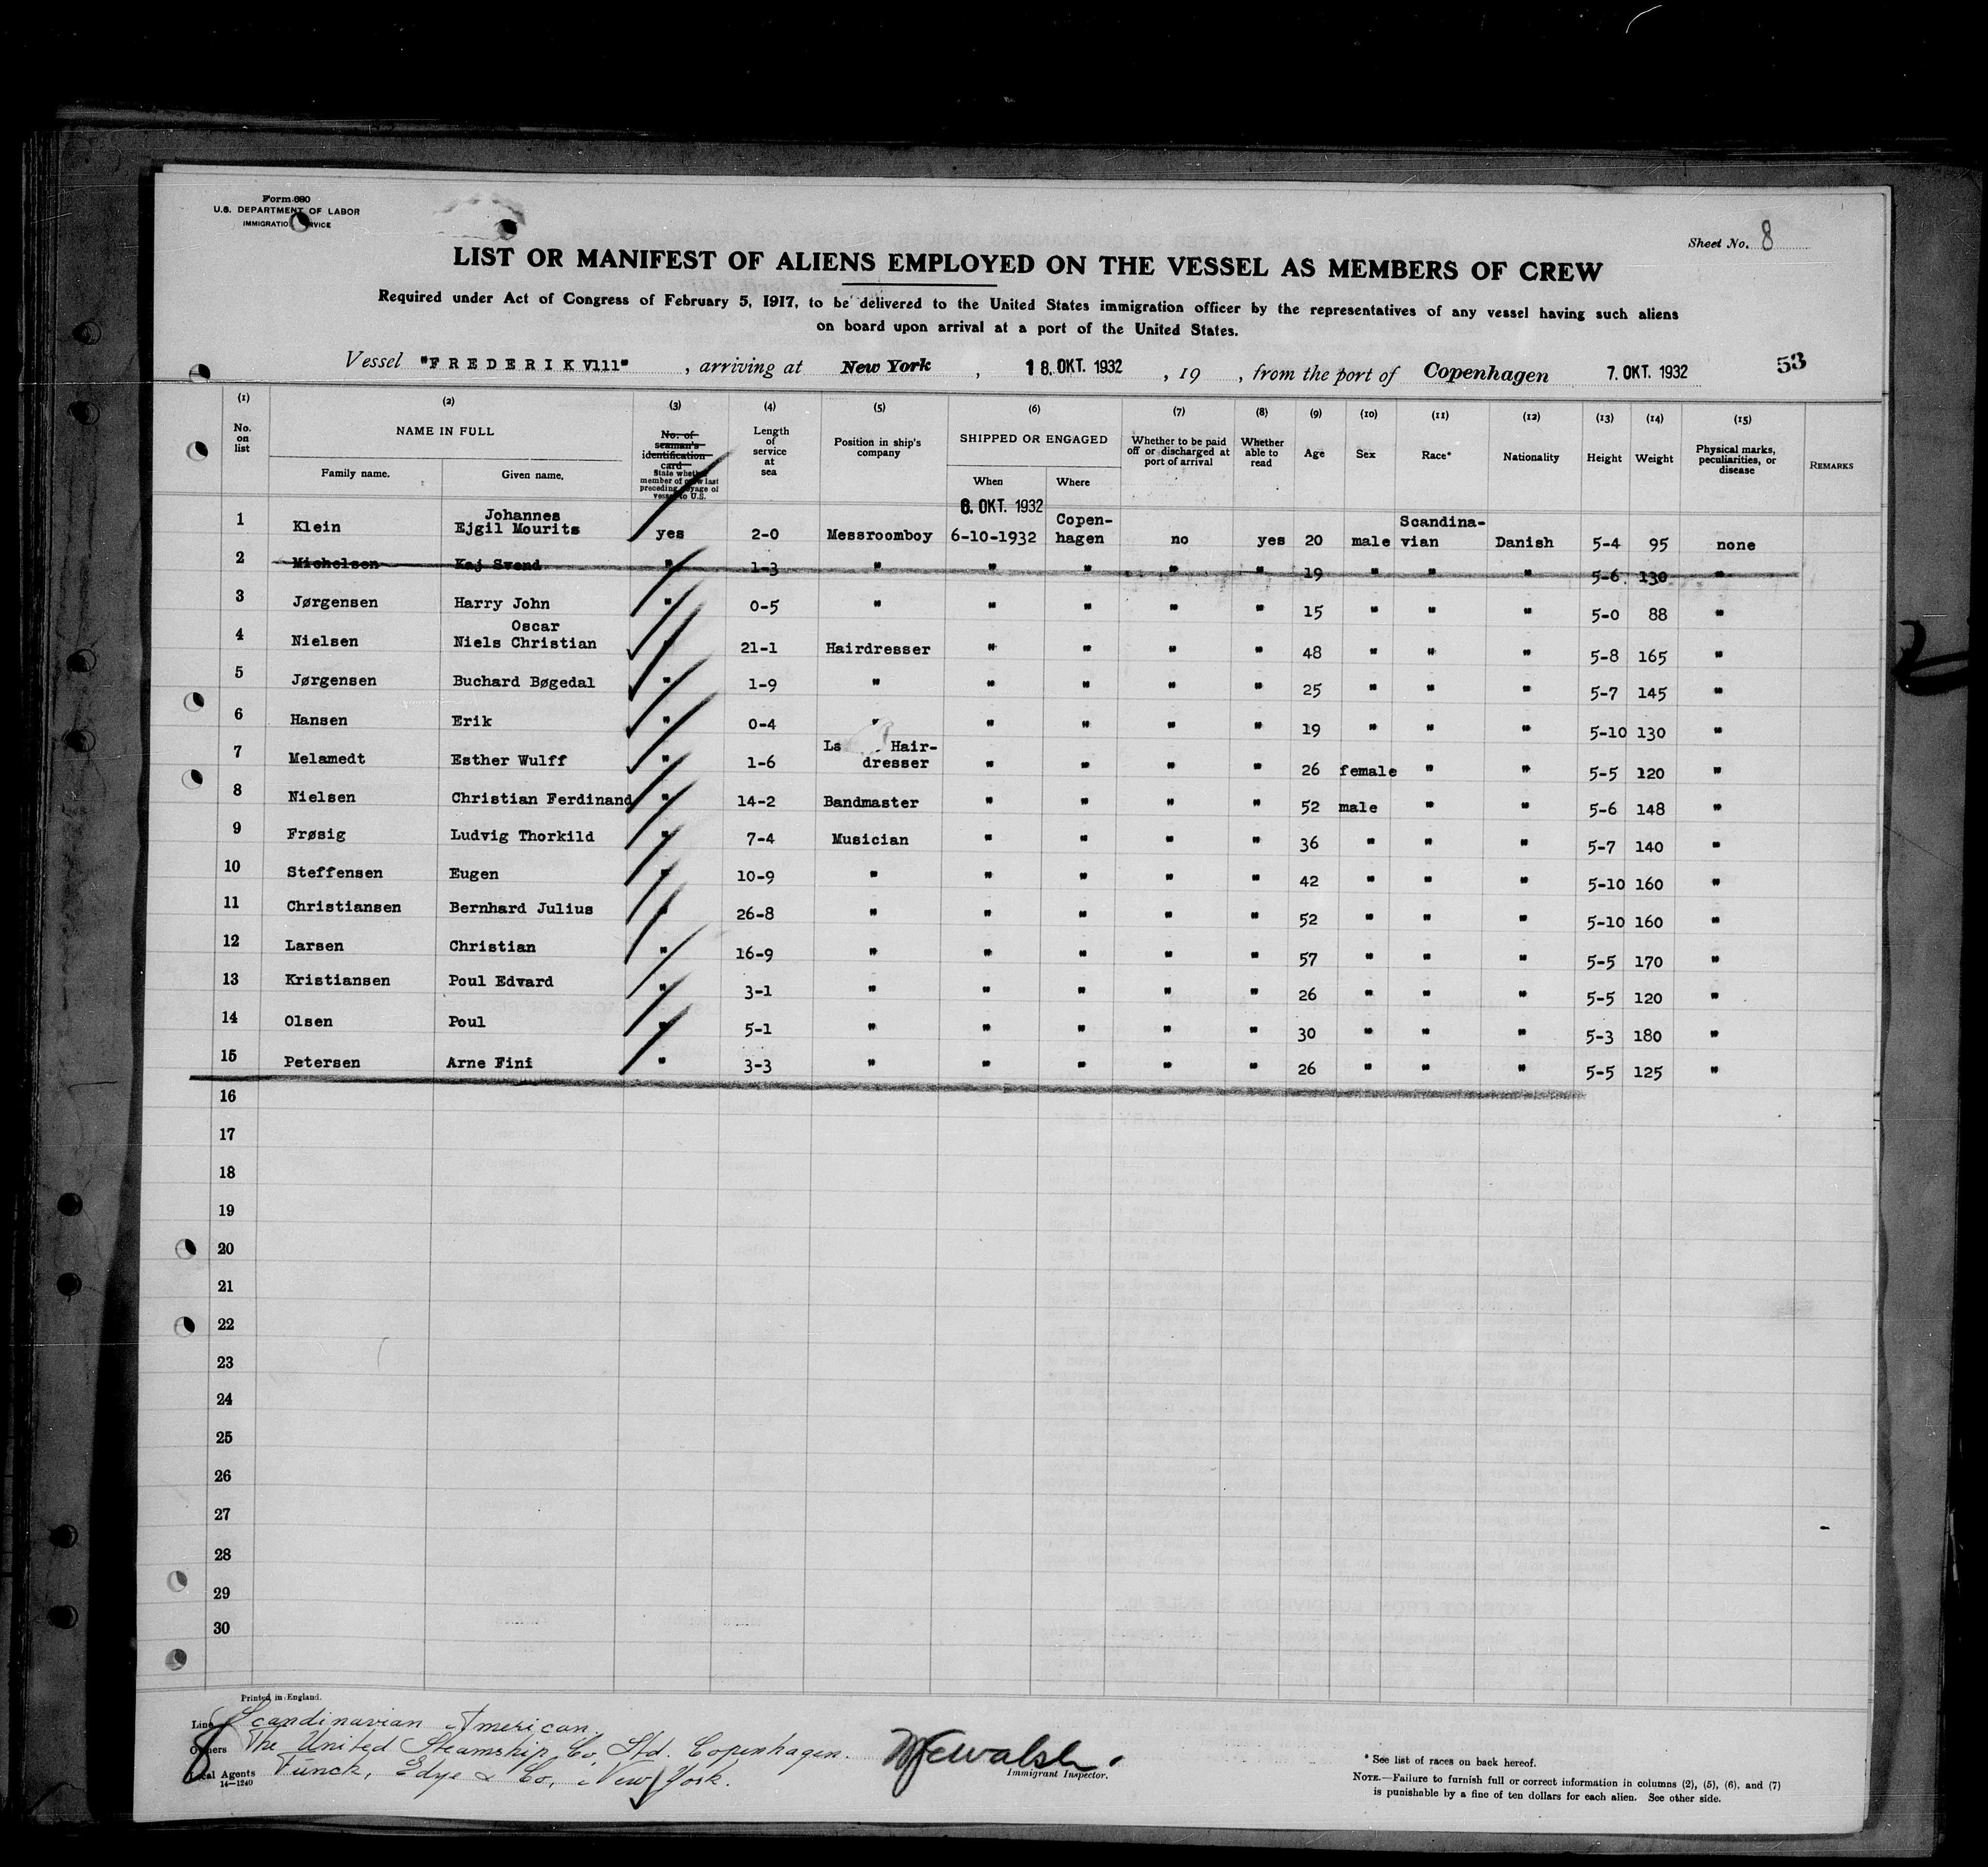 Form 680
U.S. DEPARTMENT OF LABOR
IMMIGRATIO RVICE
Sheet No. 8
LIST OR MANIFEST OF ALIENS EMPLOYED ON THE VESSEL AS MEMBERS OF CREW
Required under Act of Congress of February 5, 1917, to be delivered to the United States immigration officer by the representatives of any vessel having such aliens
on board upon arrival at a port of the United States.
Vessel "FREDERIK V111", arriving at New York, 18. OKT. 1932, 19 , from the port of Copenhagen 7. OKT. 1932 53
(1) (2) (3) (4) (5) (6) (7) (8) (9) (10) (11) (12) (13) (14) (15)
No. on list NAME IN FULL Family name. Given name. No. of seaman's identification card State whether member of crew last preceding voyage of vessel to U.S. Length of service at sea Position in ship's company SHIPPED OR ENGAGED When Where Whether to be paid off or discharged at port of arrival Whether able to read Age Sex Race* Nationality Height Weight Physical marks, peculiarities, or disease REMARKS
6. OKT. 1932
1 Klein Johannes Ejgil Mourits yes 2-0 Messroomboy 6-10-1932 Copen-hagen no yes 20 male Scandina-vian Danish 5-4 95 none
2 Michelsen Kaj Svend " 1-3 " " " " " 19 " " " 5-6 130 "
3 Jørgensen Harry John " 0-5 " " " " " 15 " " " 5-0 88 "
4 Nielsen Oscar Niels Christian " 21-1 Hairdresser " " " " 48 " " " 5-8 165 "
5 Jørgensen Buchard Bøgedal " 1-9 " " " " " 25 " " " 5-7 145 "
6 Hansen Erik " 0-4 " " " " " 19 " " " 5-10 130 "
7 Melamedt Esther Wulff " 1-6 La Hair-dresser " " " " 26 female " " 5-5 120 "
8 Nielsen Christian Ferdinand " 14-2 Bandmaster " " " " 52 male " " 5-6 148 "
9 Frøsig Ludvig Thorkild " 7-4 Musician " " " " 36 " " " 5-7 140 "
10 Steffensen Eugen " 10-9 " " " " " 42 " " " 5-10 160 "
11 Christiansen Bernhard Julius " 26-8 " " " " " 52 " " " 5-10 160 "
12 Larsen Christian " 16-9 " " " " " 57 " " " 5-5 170 "
13 Kristiansen Poul Edvard " 3-1 " " " " " 26 " " " 5-5 120 "
14 Olsen Poul " 5-1 " " " " " 30 " " " 5-3 180 "
15 Petersen Arne Fini " 3-3 " " " " " 26 " " " 5-5 125 "
16
17
18
19
20
21
22
23
24
25
26
27
28
29
30
Printed in England.
Line Scandinavian American.
Owners The United Steamship Co. Ltd. Copenhagen.
Local Agents Funck, Edye & Co, New York.
14-1240
Immigrant Inspector.
* See list of races on back hereof.
NOTE.—Failure to furnish full or correct information in columns (2), (5), (6), and (7)
is punishable by a fine of ten dollars for each alien. See other side.